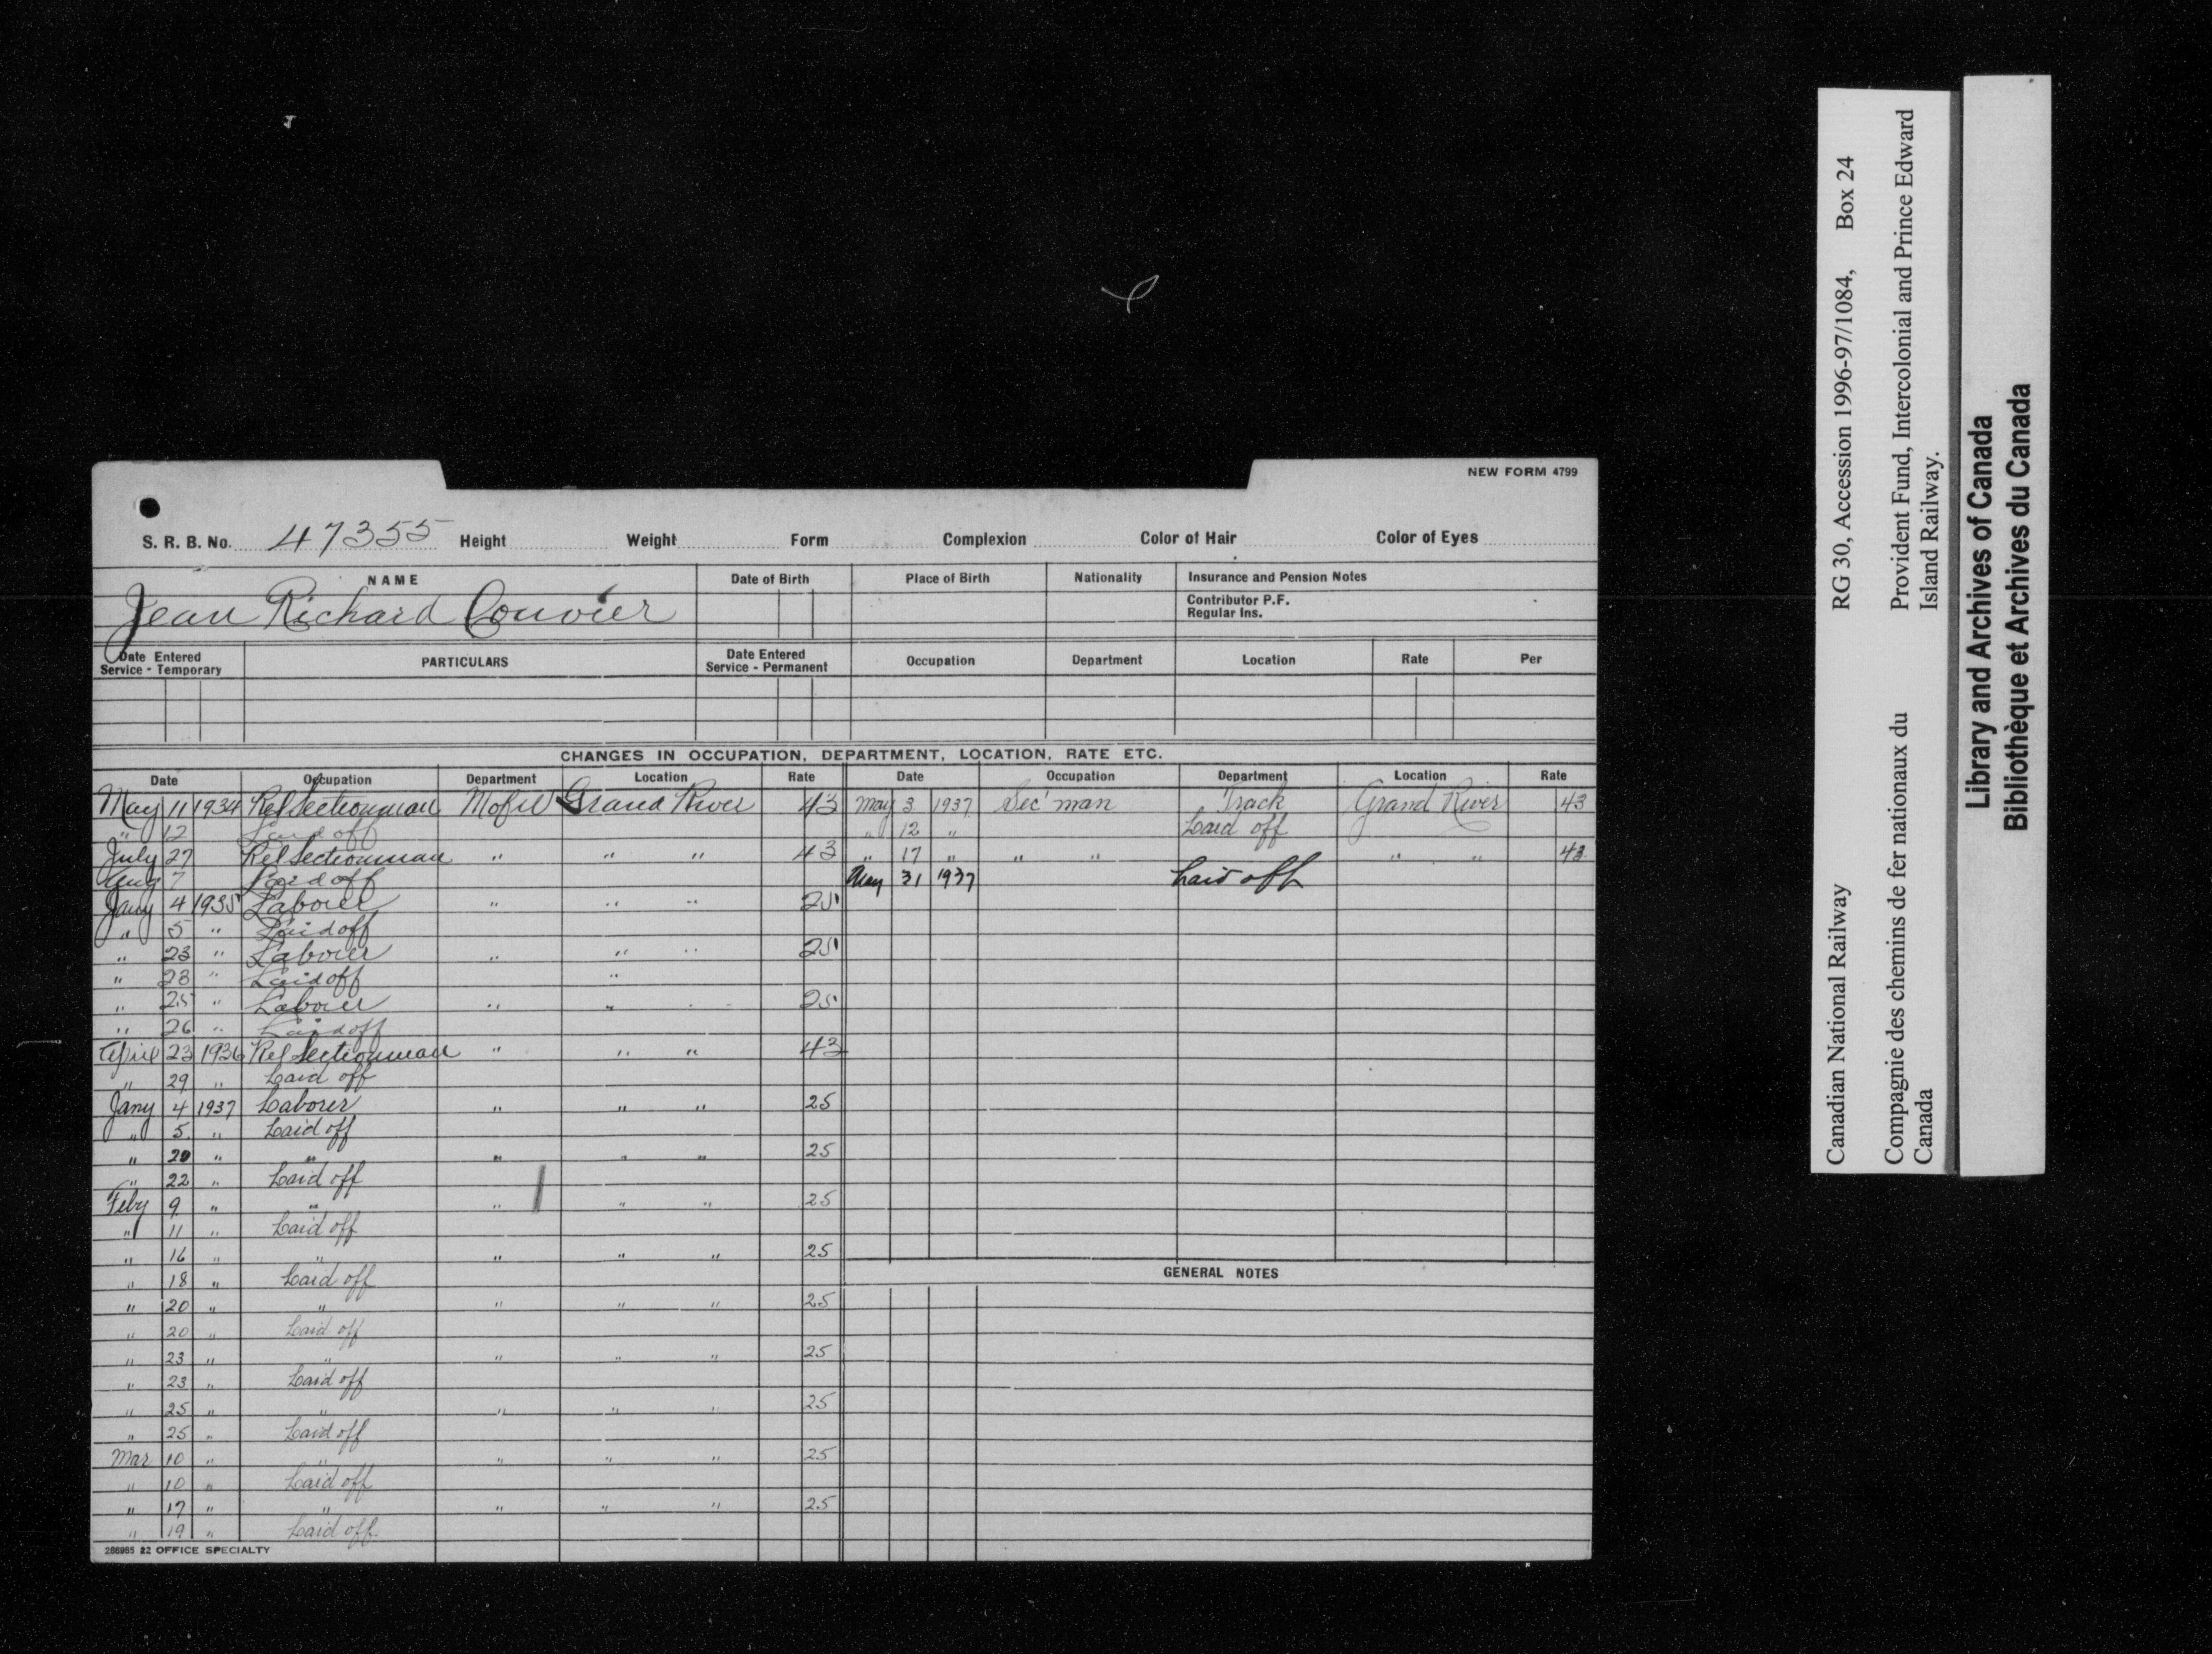 NEW FORM 4799
S. R. B. No. 47355 Height Weight Form Complexion Color of Hair Color of Eyes
NAME Date of Birth Place of Birth Nationality Insurance and Pension Notes
Jean Richard Couvier
Contributor P.F.
Regular Ins.
Date Entered Service - Temporary PARTICULARS Date Entered Service - Permanent Occupation Department Location Rate Per
CHANGES IN OCCUPATION, DEPARTMENT, LOCATION, RATE ETC.
Date Occupation Department Location Rate Date Occupation Department Location Rate
May 11 1934 Rel Sectionman Mofw Grand River 43
" 12 Laid off
July 27 Rel Sectionman " " " 43
Aug 7 Laid off
Jany 4 1935 Laborer " " " 25
" 5 " Laid off
" 23 " Laborer " " " 25
" 23 " Laid off "
" 25 " Laborer " " " 25
" 26 " Laid off
April 23 1936 Rel Sectionman " " " 43
" 29 " Laid off
Jany 4 1937 Laborer " " " 25
" 5 " Laid off
" 20 " " " " " 25
" 22 " Laid off
Feby 9 " " " " " 25
" 11 " Laid off
" 16 " " " " " 25
" 18 " Laid off
" 20 " " " " " 25
" 20 " Laid off
" 23 " " " " " 25
" 23 " Laid off
" 25 " " " " " 25
" 25 " Laid off
Mar 10 " " " " " 25
" 10 " Laid off
" 17 " " " " " 25
" 19 " Laid off
286985 22 OFFICE SPECIALTY
May 3 1937 Sec'man Track Grand River 43
" 12 " Laid off
" 17 " " " " " 43
May 31 1937 Laid off
GENERAL NOTES
Canadian National Railway RG 30, Accession 1996-97/1084, Box 24
Compagnie des chemins de fer nationaux du Provident Fund, Intercolonial and Prince Edward
Canada Island Railway.
Library and Archives of Canada
Bibliothèque et Archives du Canada